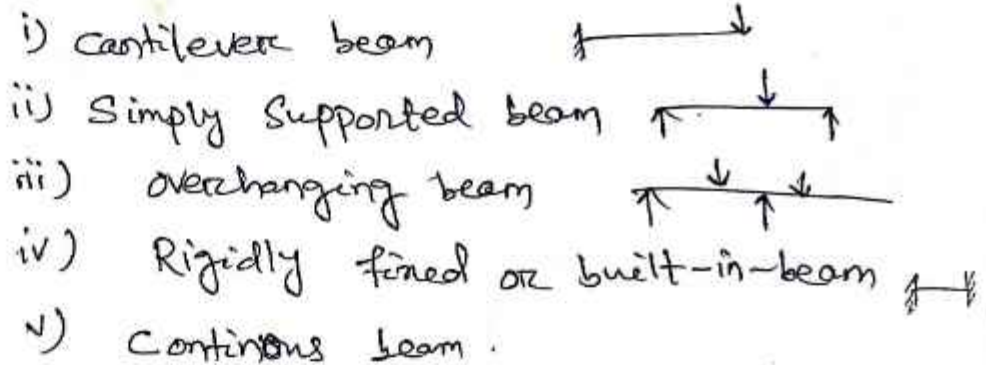 i) Cantilever beam
ii) Simply Supported beam
iii) overhanging beam
iv) Rigidly fixed or built-in-beam
v) Continous beam.